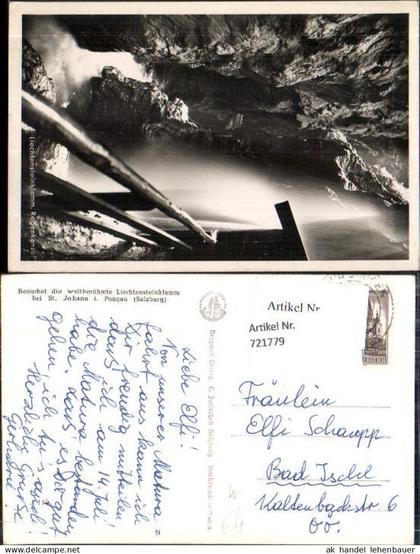 Liechtensteinklamm, Regenkanzel
Besuchet die weltberühmte Liechtensteinklamm
bei St. Johann i. Pongau (Salzburg)
Liebe Elfi!
Von unserer Matura-
fahrt aus kann ich
Dir freudig mitteilen,
daß ich am 14. Juli
die Matura bestanden
habe. Daß es Dir gut
gehen
Herzliche Grüße
Artikel Nr
Artikel Nr.
721779
Fräulein
Elfi Schaupp
Bad Ischl
Kaltenbachstr 6
OÖ.
www.ansichtskartenhandel.at
© ak handel lehenbauer